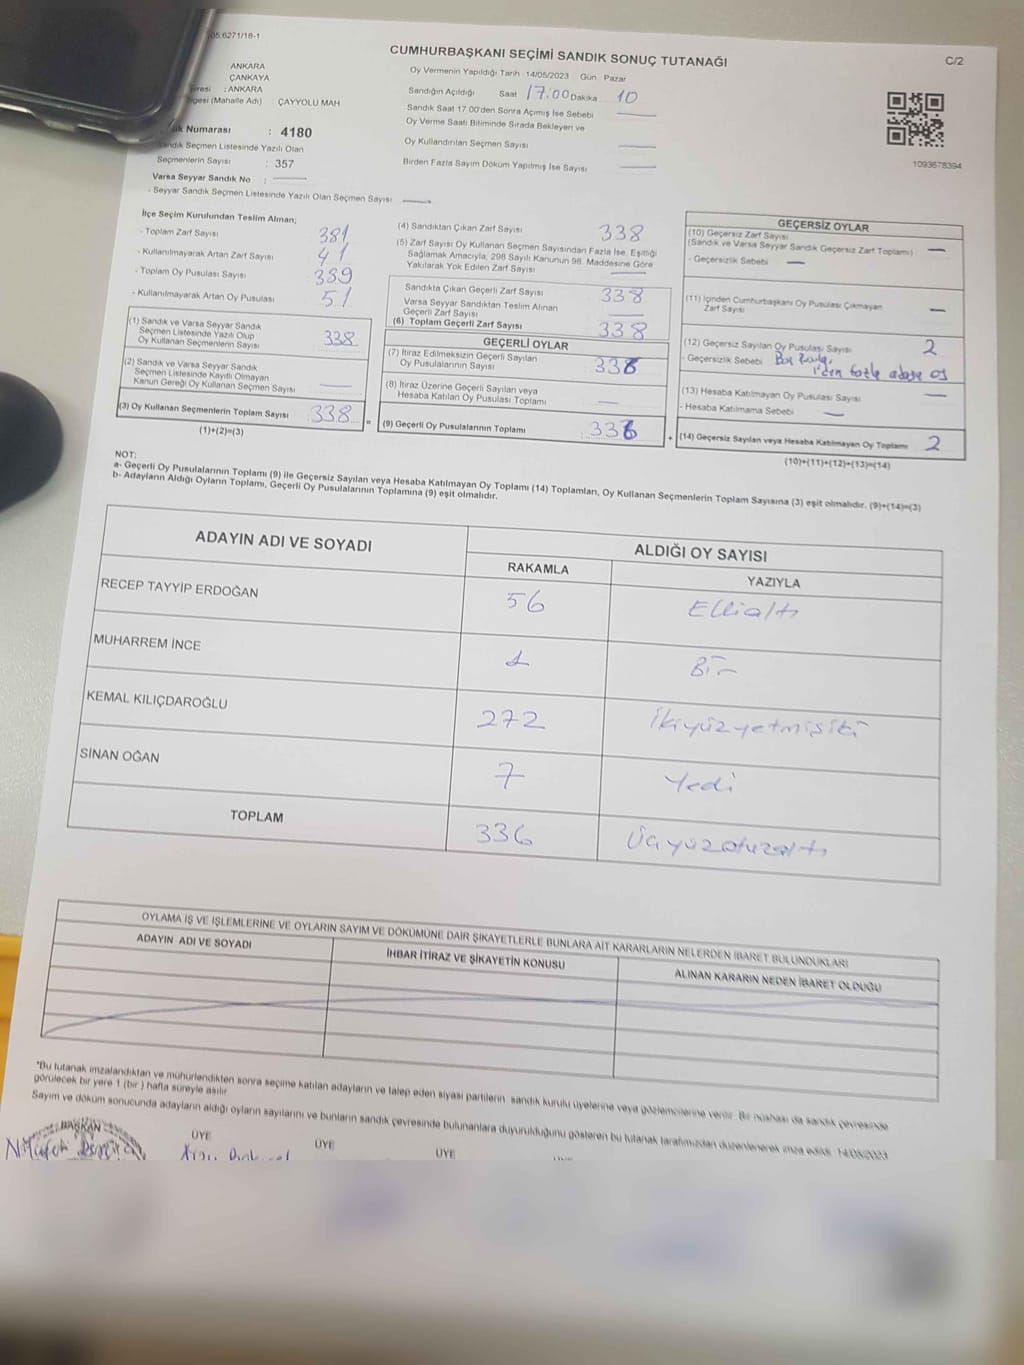 06.6271/18-1
CUMHURBAŞKANI SEÇİMİ SANDIK SONUÇ TUTANAĞI
C/2
ANKARA
ÇANKAYA
: ANKARA
(Mahalle Adı) ÇAYYOLU MAH
Numarası : 4180
Sandık Seçmen Listesinde Yazılı Olan
Seçmenlerin Sayısı : 357
Varsa Seyyar Sandık No :
- Seyyar Sandık Seçmen Listesinde Yazılı Olan Seçmen Sayısı
Oy Vermenin Yapıldığı Tarih 14/05/2023 Gün Pazar
Sandığın Açıldığı Saat 17.00 Dakika 10
Sandık Saat 17.00'den Sonra Açımış İse Sebebi
Oy Verme Saati Bitiminde Sırada Bekleyen ve
Oy Kullandırılan Seçmen Sayısı
Birden Fazla Sayım Döküm Yapılmış İse Sayısı
1093678394
İlçe Seçim Kurulundan Teslim Alınan;
- Toplam Zarf Sayısı 381
- Kullanılmayarak Artan Zarf Sayısı 41
- Toplam Oy Pusulası Sayısı 389
- Kullanılmayarak Artan Oy Pusulası 51
(1) Sandık ve Varsa Seyyar Sandık
Seçmen Listesinde Yazılı Olup
Oy Kullanan Seçmenlerin Sayısı 338
(2) Sandık ve Varsa Seyyar Sandık
Seçmen Listesinde Kayıtlı Olmayan
Kanun Gereği Oy Kullanan Seçmen Sayısı
(3) Oy Kullanan Seçmenlerin Toplam Sayısı 338
(1)+(2)=(3)
(4) Sandıktan Çıkan Zarf Sayısı 338
(5) Zarf Sayısı Oy Kullanan Seçmen Sayısından Fazla İse, Eşitliği
Sağlamak Amacıyla, 298 Sayılı Kanunun 98. Maddesine Göre
Yakılarak Yok Edilen Zarf Sayısı
Sandıkta Çıkan Geçerli Zarf Sayısı 338
Varsa Seyyar Sandıktan Teslim Alınan
Geçerli Zarf Sayısı
(6) Toplam Geçerli Zarf Sayısı 338
GEÇERLİ OYLAR
(7) İtiraz Edilmeksizin Geçerli Sayılan
Oy Pusulalarının Sayısı 336
(8) İtiraz Üzerine Geçerli Sayılan veya
Hesaba Katılan Oy Pusulası Toplamı
= (9) Geçerli Oy Pusulalarının Toplamı 336
GEÇERSİZ OYLAR
(10) Geçersiz Zarf Sayısı
(Sandık ve Varsa Seyyar Sandık Geçersiz Zarf Toplamı)
- Geçersizlik Sebebi
(11) İçinden Cumhurbaşkanı Oy Pusulası Çıkmayan
Zarf Sayısı
(12) Geçersiz Sayılan Oy Pusulası Sayısı 2
- Geçersizlik Sebebi
1'den fazla adaya oy
(13) Hesaba Katılmayan Oy Pusulası Sayısı
- Hesaba Katılmama Sebebi
+ (14) Geçersiz Sayılan veya Hesaba Katılmayan Oy Toplamı 2
(10)+(11)+(12)+(13)=(14)
NOT:
a- Geçerli Oy Pusulalarının Toplamı (9) ile Geçersiz Sayılan veya Hesaba Katılmayan Oy Toplamı (14) Toplamları, Oy Kullanan Seçmenlerin Toplam Sayısına (3) eşit olmalıdır. (9)+(14)=(3)
b- Adayların Aldığı Oyların Toplamı, Geçerli Oy Pusulalarının Toplamına (9) eşit olmalıdır.
ADAYIN ADI VE SOYADI
ALDIĞI OY SAYISI
RAKAMLA
YAZIYLA
RECEP TAYYİP ERDOĞAN 56 Ellialtı
MUHARREM İNCE 1 Bir
KEMAL KILIÇDAROĞLU 272 İkiyüzyetmişiki
SİNAN OĞAN 7 Yedi
TOPLAM 336 Üçyüzotuzaltı
OYLAMA İŞ VE İŞLEMLERİNE VE OYLARIN SAYIM VE DÖKÜMÜNE DAİR ŞİKAYETLERLE BUNLARA AİT KARARLARIN NELERDEN İBARET BULUNDUKLARI
ADAYIN ADI VE SOYADI
İHBAR İTİRAZ VE ŞİKAYETİN KONUSU
ALINAN KARARIN NEDEN İBARET OLDUĞU
*Bu tutanak imzalandıktan ve mühürlendikten sonra seçime katılan adayların ve talep eden siyasi partilerin sandık kurulu üyelerine veya gözlemcilerine verilir. Bir nüshası da sandık çevresinde
görülecek bir yere 1 (bir ) hafta süreyle asılır.
Sayım ve döküm sonucunda adayların aldığı oyların sayılarını ve bunların sandık çevresinde bulunanlara duyurulduğunu gösteren bu tutanak tarafımızdan düzenlenerek imza edildi. 14/05/2023
BAŞKAN
ÜYE
ÜYE
ÜYE